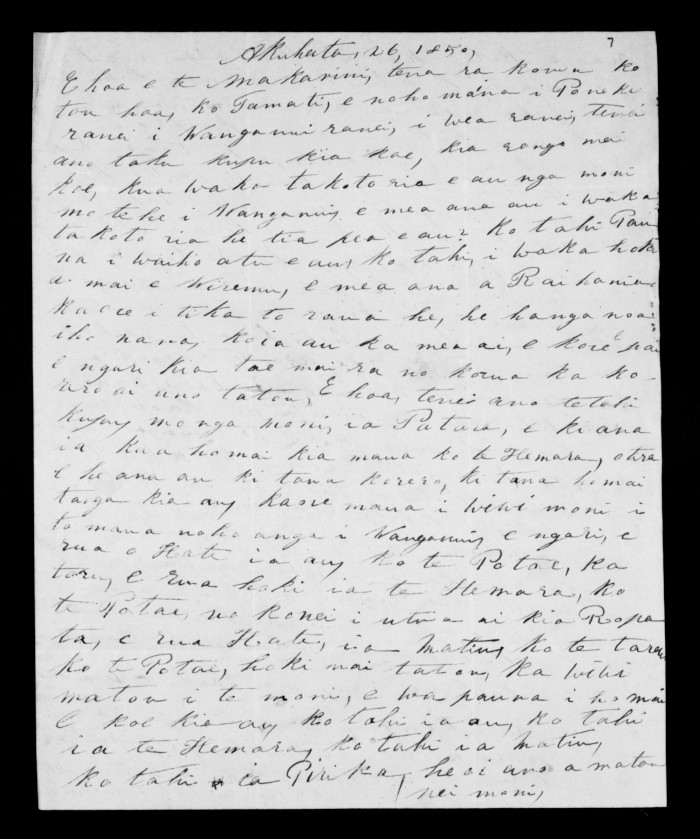 7
Akuhata, 26, 1850,
E hoa e te Makarini, tena ra korua ko
tou hoa, ko Tamati, e noho mana i Poneki
ranei i Wanganui ranei, i wea ranei, tena
ano taku kupu kia koe, kia rongo mai
koe, kua waka takoto ria e au nga moni
mo te he i Wanganui, e mea ana au i waka
takoto ria he tia pea e au? Ko tahi Pau
na i waiho atu e au, ko tahi, i waka hoki
a mai e Wiremu, e mea ana a Raihania
kaore i tika to raua he, he hanga noa
iho nana, koia au ka mea ai, e kore e pai
e ngari kia tae mai ra no korua ka ko-
rero ai ano tatou, E hoa, tenei ano tetahi
kupu, mo nga moni, ia Paturu, e ki ana
ia kua homai kia mana ko te Hemara, otira
e he ana au ki tana korero, ki tana homai
tanga kia au, kaore mana i wiwi moni i
to maua noho anga i Wanganui, e ngari, e
rua o Hate ia au, ko te Potae, ka
toru, e rua hoki ia te Hemara, ko
te Potae, no konei i utua ai kia Ropa
ta, e rua Hate, ia Matiu, ko te tarau
ko te Potae, hoki mai tatou, ka wiwi
matou i te moni, e wa pauna i homai
e koe kia au, ko tahi ia au, ko tahi
ia te Hemara, ko tahi ia Matiu,
ko tahi ia Pirika, heoi ano a matou
nei moni,